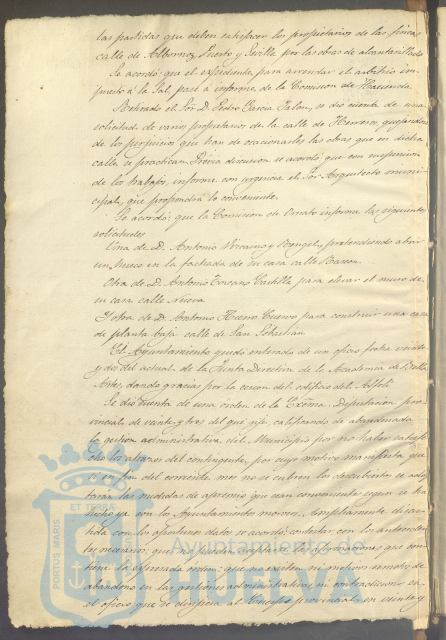 las partidas que deben satisfacer los propietarios de las fincas
calle de Albornoz, Puerto y Sevilla por las obras de alcantarillado
Se acordó: que el expediente para arrendar el arbitrio im-
puesto á la Sal, pase á informe de la Comision de Hacienda.
Retirado el Sor D. Pedro Garcia Jalon, se dió cuenta de una
solicitud de varios propietarios de la calle de Herreros, quejandose
de los perjuicios que han de ocasionarles las obras que en dicha
calle se practican. Previa discusion se acordó que con suspension
de los trabajos, informe con urgencia el Sor Arquitecto muni-
cipal, que propondrá lo conveniente.
Se acordó: que la Comision de Ornato informe las siguientes
solicitudes
Una de D. Antonio Vizcaino y Rengel, pretendiendo abrir
un hueco en la fachada de su casa calle
Otra de D. Antonio Toscano Castilla para elevar el muro de
su casa calle Nueva
Y otra de D. Antonio Hierro Cuervo para construir una casa
de planta baja calle de San Sebastian.
El Ayuntamiento quedó enterado de un oficio fecha veinte
y dos del actual de la Junta Directiva de la Academia de Bellas
Artes, dando gracias por la cesion del edificio del Asilo
Se dió cuenta de una órden de la Excma. Diputacion pro-
vincial de veinte y tres del que rije, calificando de abandonada
la gestion administrativa del Municipio por no haber satisfe-
cho los atrasos del contingente, por cuyo motivo manifiesta que
si en fin del corriente mes no se cubren los descubiertos se adop-
tarán las medidas de apremio que sean convenientes segun se ha
hecho ya con los Ayuntamientos morosos. Ampliamente discu-
tida con los oportunos datos se acordó: contestar con los anteceden-
tes necesarios: que no puede aceptar las afirmaciones que con-
tiene la espresada órden: que no existen ni aun remoto de
abandono en las gestiones administrativas, ni contradiccion en
el oficio que se dirijiera al Cuerpo provincial en veinte y
PORTUS MARIS
ET TERRÆ
Ayuntamiento de
HUELVA